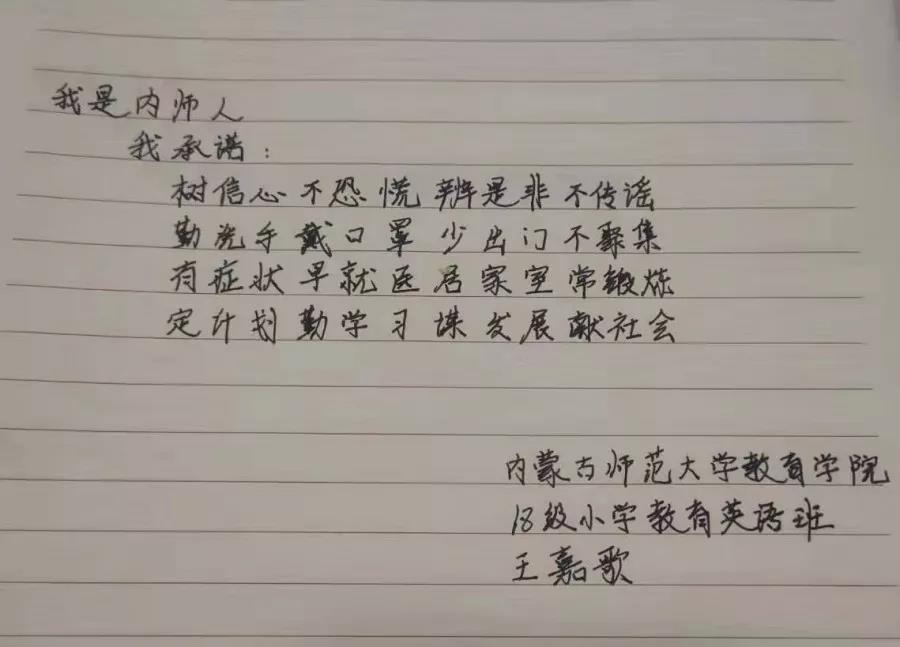 我是内师人
我承诺:
树信心 不恐慌 辨是非 不传谣
勤洗手 戴口罩 少出门 不聚集
有症状 早就医 居家室 常锻炼
定计划 勤学习 谋发展 献社会
内蒙古师范大学教育学院
18级小学教育英语班
王嘉歌